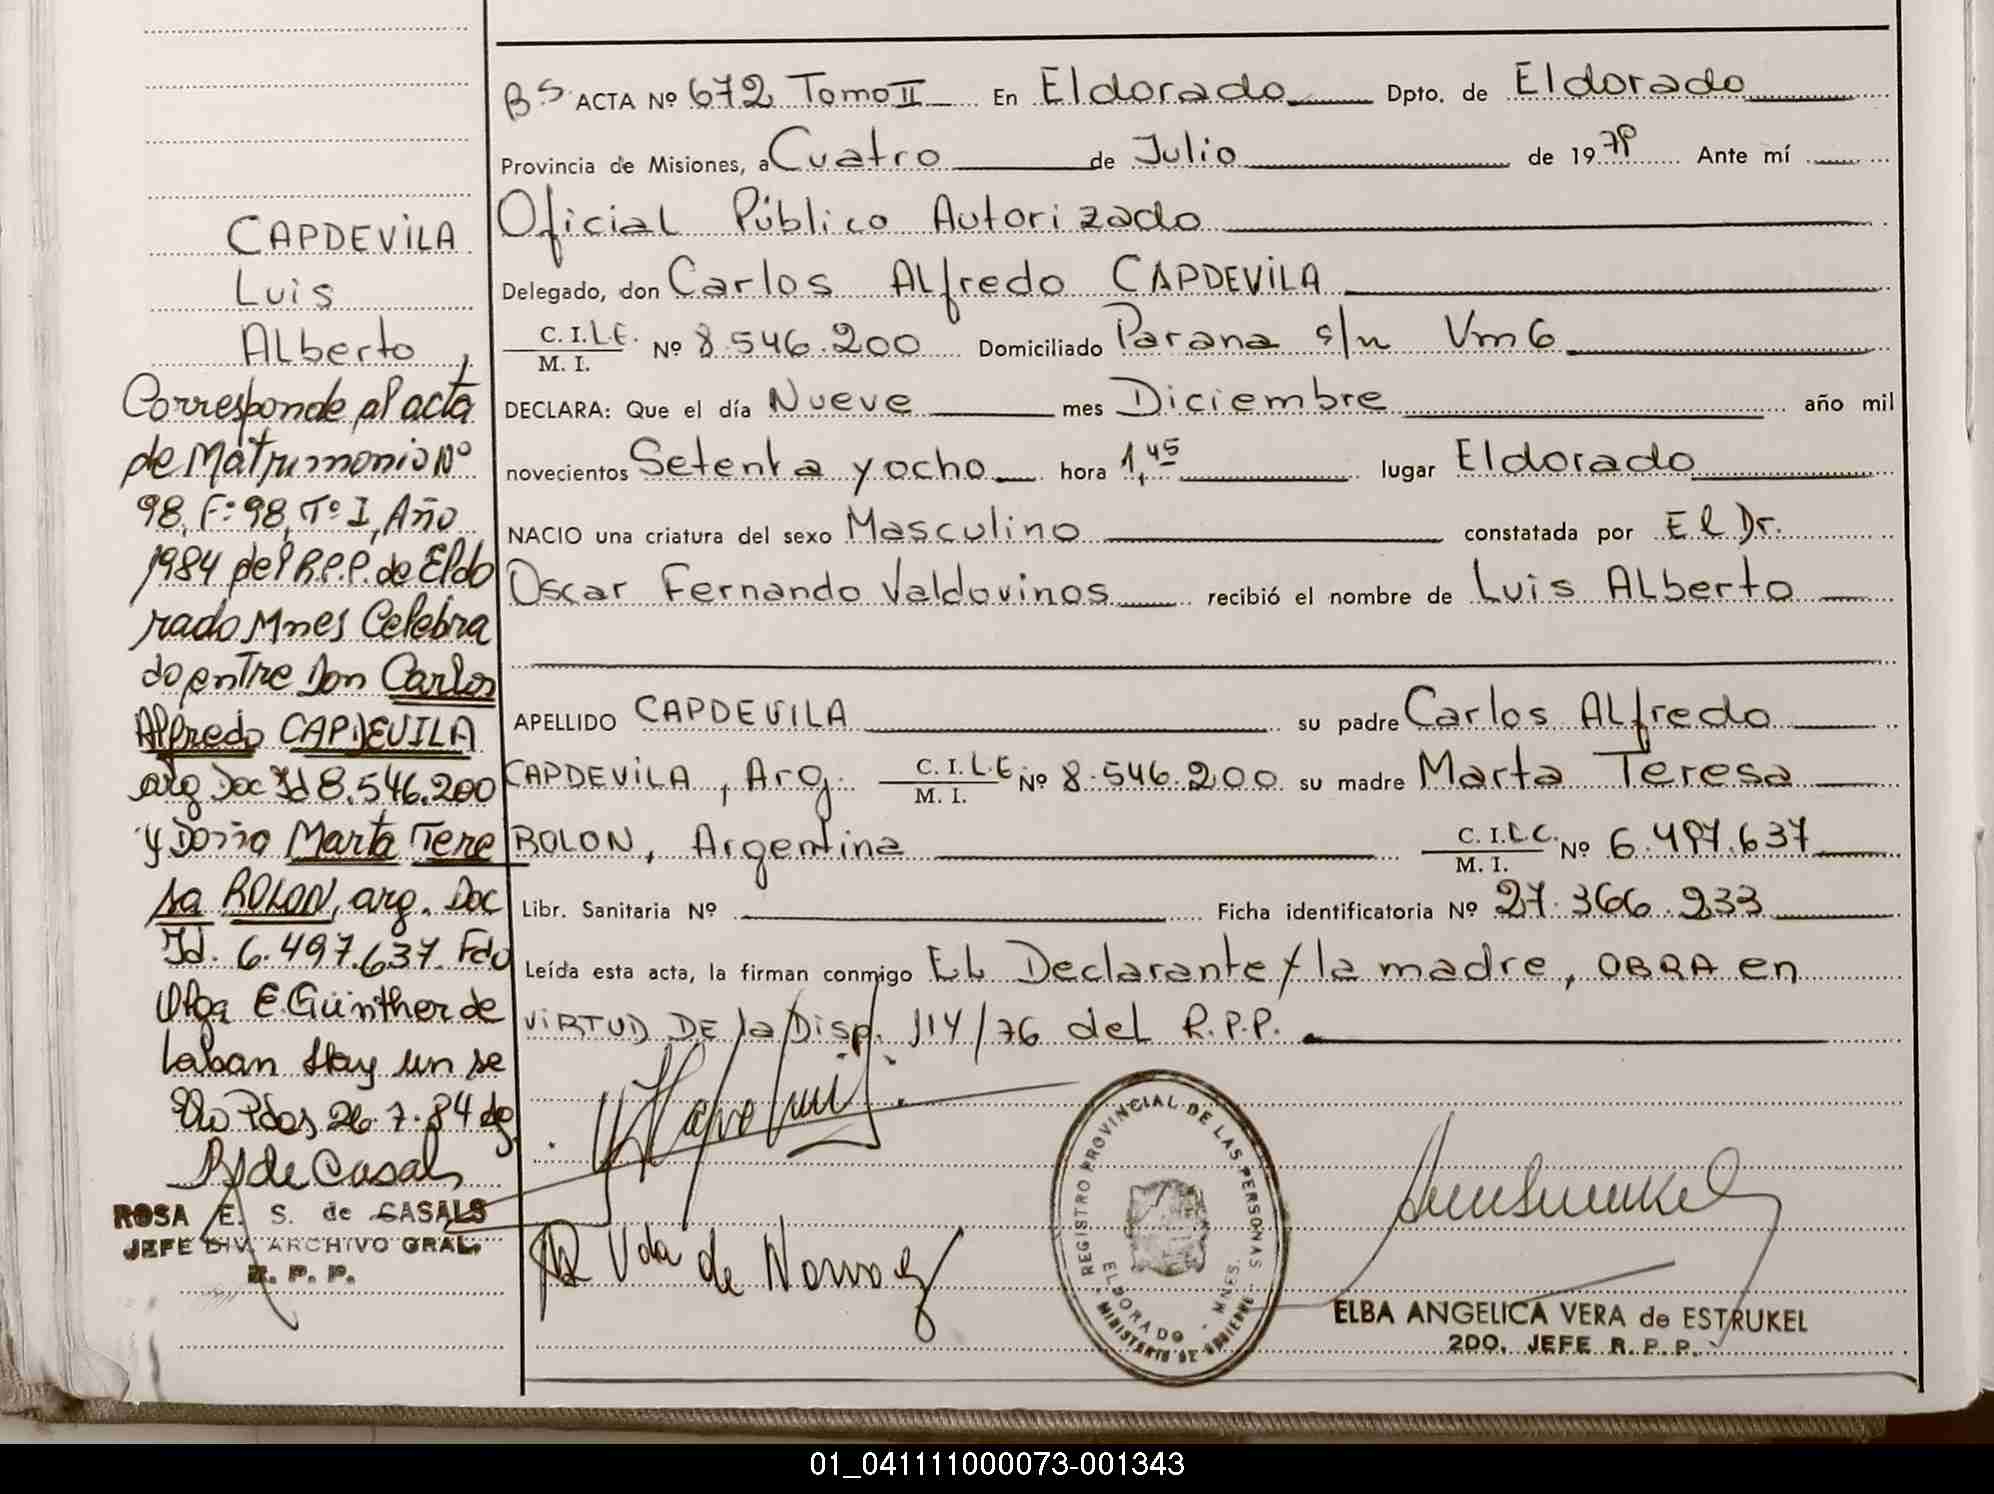 CAPDEVILA
Luis
Alberto,
Corresponde al acta
de Matrimonio Nº
98, F:98, Tº I, Año
1984 del R.P.P. de Eldo
rado Mnes Celebra
do entre Don Carlos
Alfredo CAPDEVILA
arg Doc Id 8.546.200
y Doña Marta Tere
sa ROLON, arg. Doc
Id. 6.497.637. Fdo
Olga E. Günther de
Laban Hay un se
llo Pdas 26.7.84 dg
RSdeCasals
ROSA E. S. de CASALS
JEFE DIV. ARCHIVO GRAL.
R. P. P.
BS. ACTA Nº 672 Tomo II En Eldorado Dpto. de Eldorado
Provincia de Misiones, a Cuatro de Julio de 1979 Ante mí
Oficial Público Autorizado
Delegado, don Carlos Alfredo CAPDEVILA
C. I. L.E. M. I. Nº 8.546.200 Domiciliado Parana s/n Vm6
DECLARA: Que el día Nueve mes Diciembre año mil
novecientos Setenta y ocho hora 1,45 lugar Eldorado
NACIO una criatura del sexo Masculino constatada por El Dr.
Oscar Fernando Valdovinos recibió el nombre de Luis Alberto
APELLIDO CAPDEVILA su padre Carlos Alfredo
CAPDEVILA, Arg. C. I. L.E. M. I. Nº 8.546.200 su madre Marta Teresa
ROLON, Argentina C. I. L.C. M. I. Nº 6.497.637
Libr. Sanitaria Nº Ficha identificatoria Nº 27.366.233
Leída esta acta, la firman conmigo El Declarante y la madre, OBRA en
VIRTUD DE la Disp. 114/76 del R.P.P.
Vda de
REGISTRO PROVINCIAL DE LAS PERSONAS
ELDORADO - MNES.
MINISTERIO DE GOBIERNO
ELBA ANGELICA VERA de ESTRUKEL
2DO. JEFE R. P. P.
01_041111000073-001343